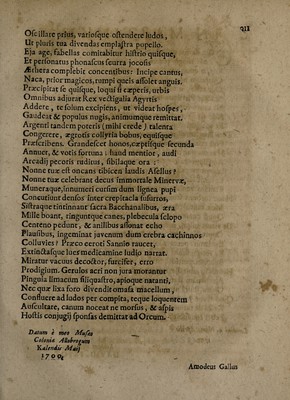 Oscillare prius, variosque ostendere ludos,
Ut pluris tua divendas emplastra popello.
Eja age, fabellas comitabitur histrio quisque,
Et personatus phonascus scurra jocosis
Æthera complebit concentibus: Incipe cantus,
Naca, prior magicos, rumpi queis assolet anguis.
Præcipitat se quisque, loqui si cæperis, urbis
Omnibus adjurat Rex vectigalia Agyrtis
Addere, te solum excipiens, ut videat hospes,
Gaudeat & populus nogis, animumque remittat.
Argenti tandem poteris (mihi crede) talenta
Congerere, ægrosis collyria bobus, equisque
Præscribens. Grandescet honos, cæptisque secunda
Annuet, & votis fortuna: haud mentior, audi
Arcadij pecoris ruditus, sibilaque ora:
Nonne tuæ est oncans tibicen laudis Asellus?
Nonne tuæ celebrant decus immortale Minervæ,
Muneraque, innumeri cursim dum lignea pupi
Concutiunt densos inter crepitacla susurros,
Sistraque tintinnant sacra Bacchanalibus, æra
Mille boant, ringuntque canes, plebecula sclopo
Centeno pedunt, & anilibus assonat echo
Plausibus, ingeminat juvenum dum crebra cachinnos
Colluvies? Præco eeroei Sannio raucet,
Extinctasque lues medicamine ludio narrat.
Miratur vacuus decoctor, furcifer, erro
Prodigium. Gerulos acri non jura morantur
Pingula limacum siliquastro, apioque natanti,
Nec quæ lixa foro divendit omasa macellum,
Confluere ad ludos per compita, teque loquentem
Auscultare, canum noceat ne morsus, & aspis
Hostis conjugij sponsas demittat ad Orcum.
Datum è meo Musæo
Coloniæ Allobrogum
Kalendis Maij
1700.
Amodeus Gallus